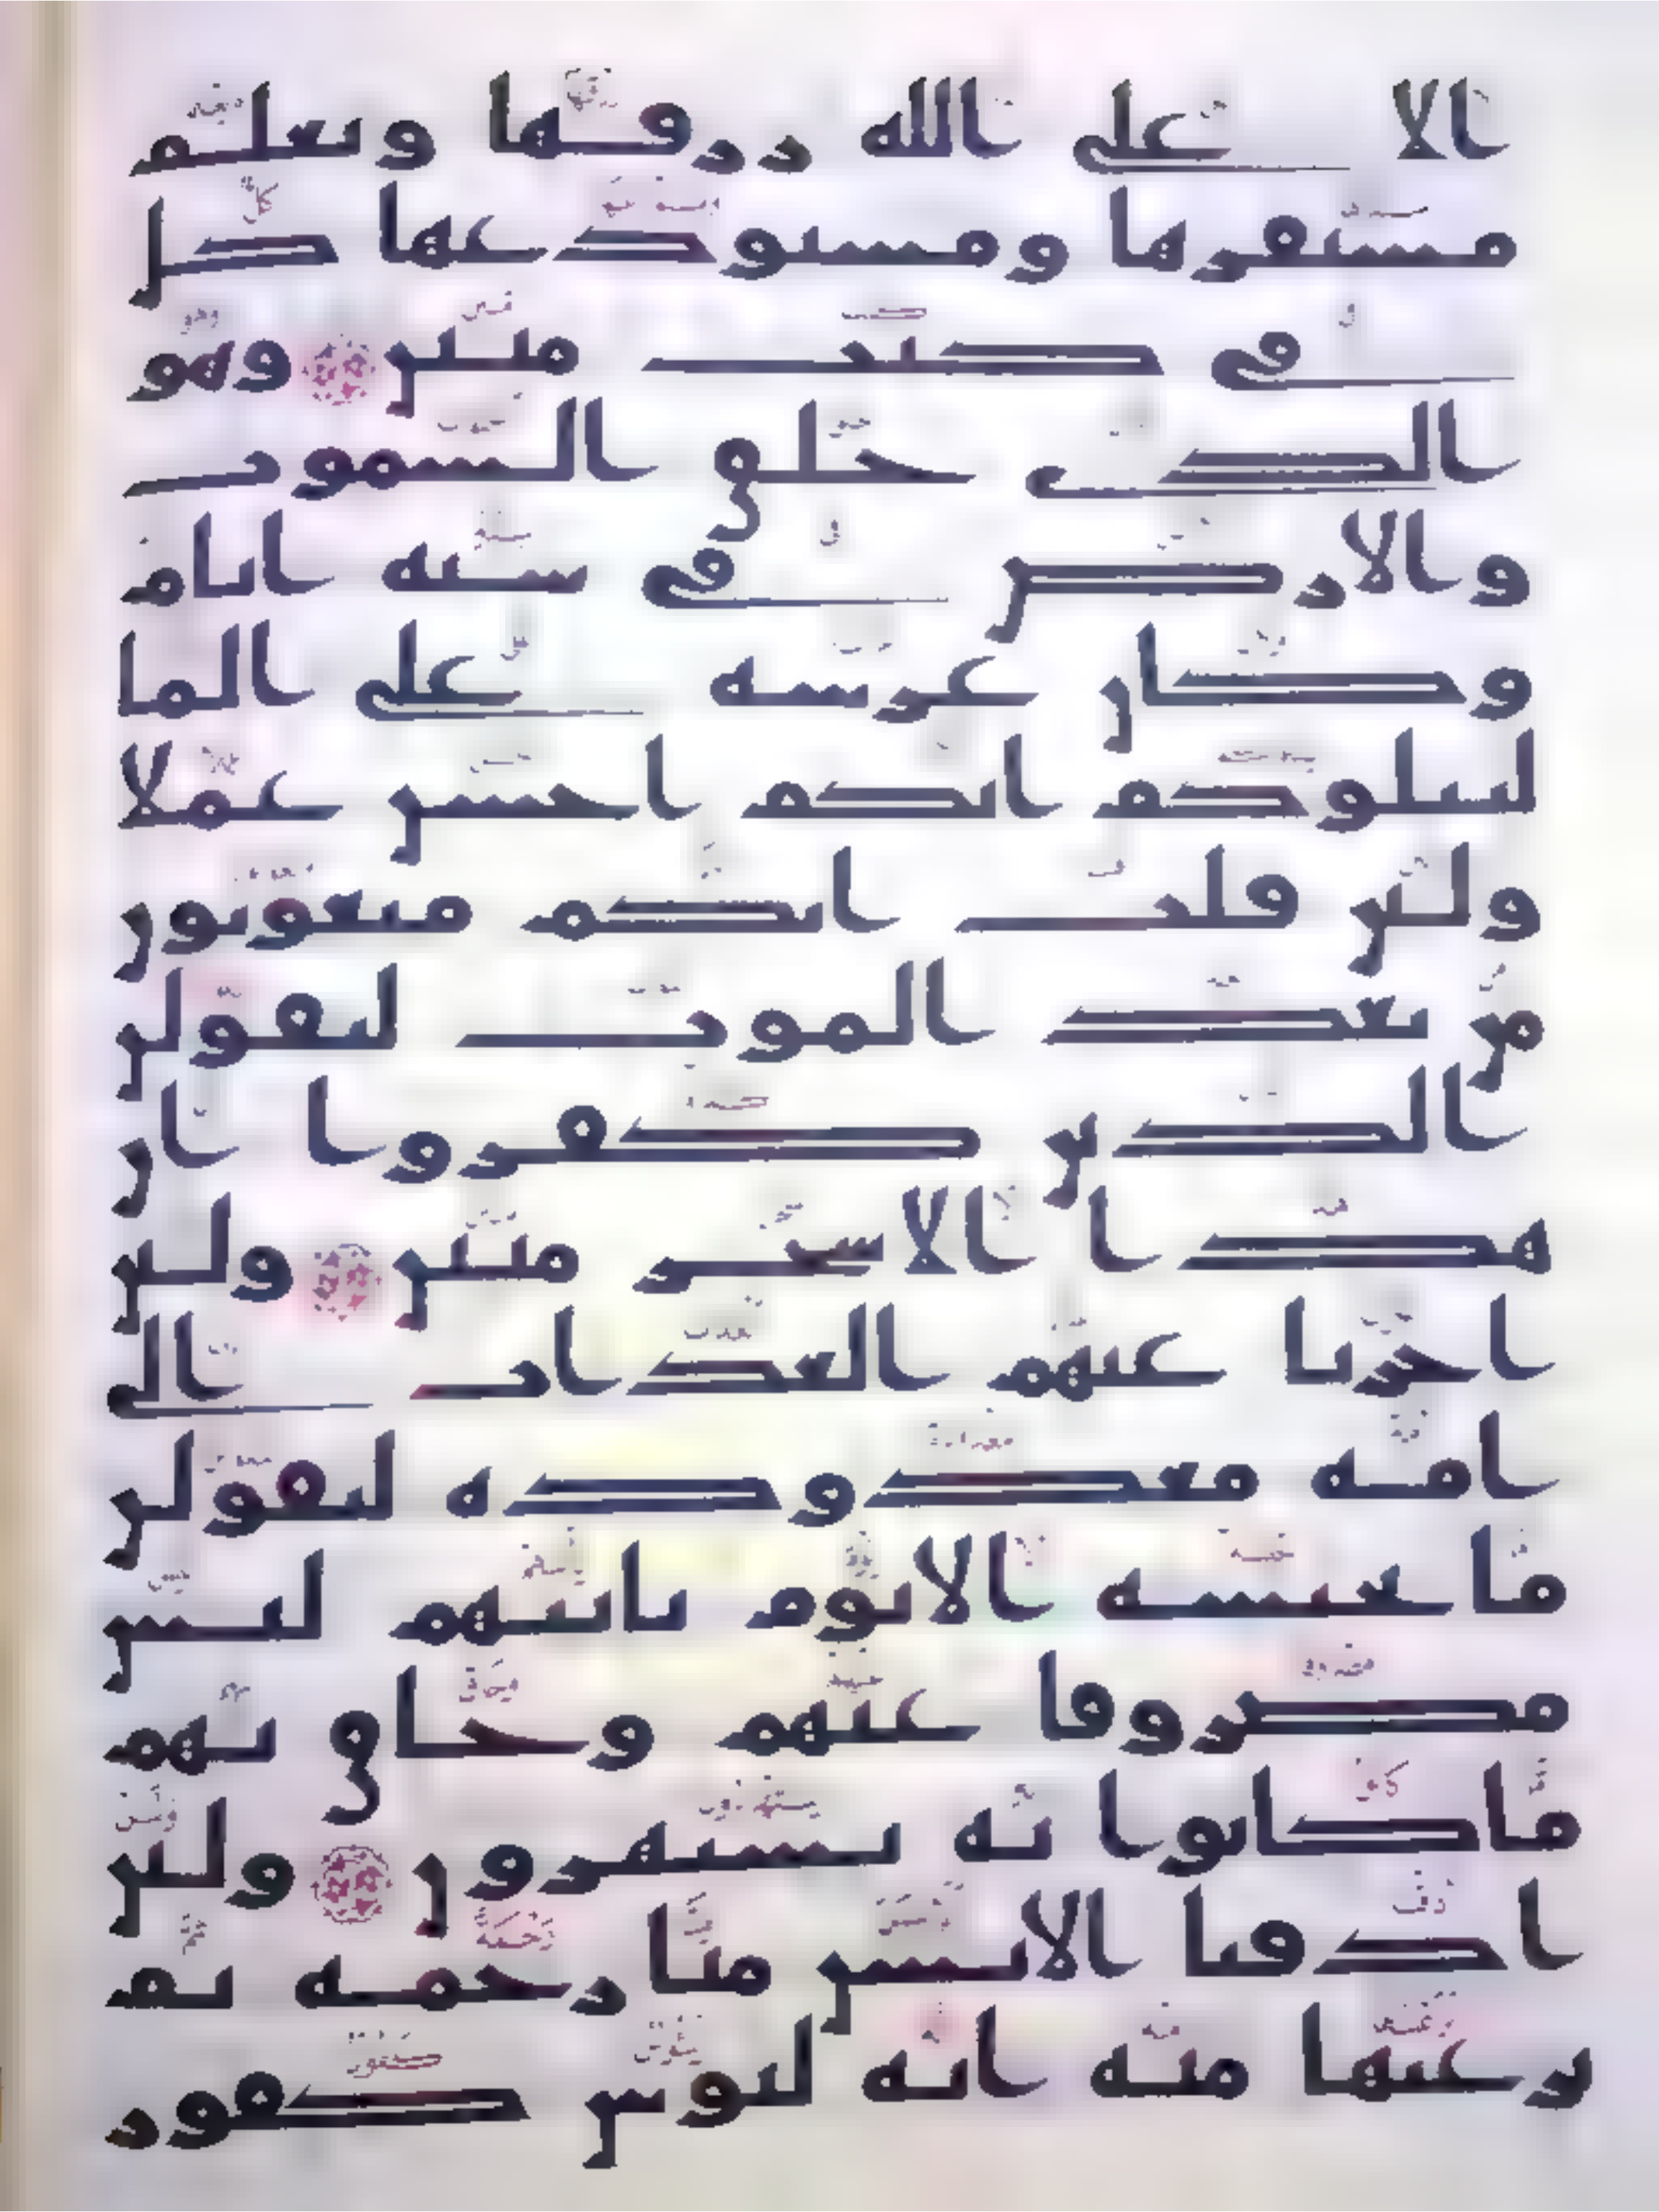 الا على الله رزقها ويعلم
مستقرها ومستودعها كل
في كتب مبين وهو
الذي خلق السموت
والارض في ستة ايام
وكان عرشه على الما
ليبلوكم ايكم احسن عملا
ولئن قلت انكم مبعوثون
من بعد الموت ليقولن
الذين كفروا ان
هذا الا سحر مبين ولئن
اخرنا عنهم العذاب الى
امة معدودة ليقولن
ما يحبسه الا يوم ياتيهم ليس
مصروفا عنهم وحاق بهم
ما كانوا به يستهزون ولئن
اذقنا الانسن منا رحمة ثم
نزعنها منه انه ليوس كفور